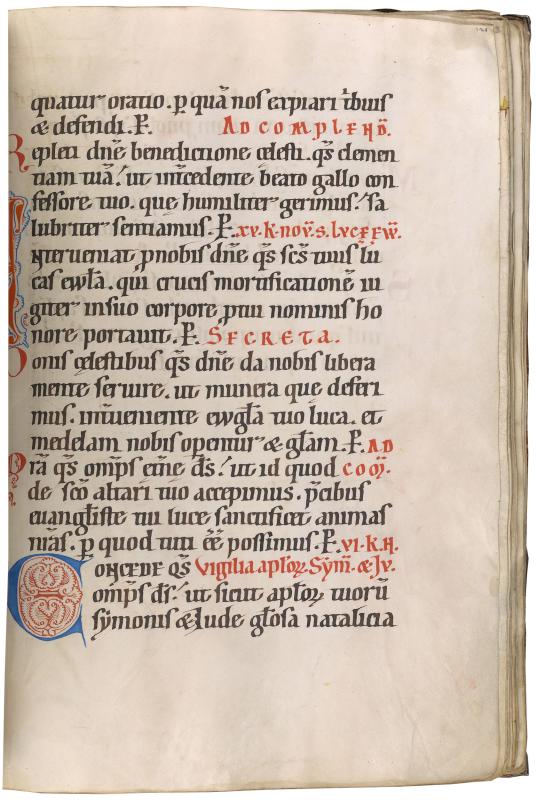 quatur oratio. p quā nos expiari t̄buis
& defendi. P. AD COMPLEND̄.
Repleti dn̄e benedictione celesti. qs̄ clemen
tiam tuā. ut int̄cedente beato gallo con
fessore tuo. que humiliter gerimus. sa
lubriter sentiamus. P. XV. K. NOV̄. S. LVCE EW̄.
Interveniat p nobis dn̄e qs̄ sc̄s tuus lu
cas ewl̄a. qui crucis mortificationē iu
giter in suo corpore p tui nominis ho
nore portauit. P. SECRETA.
Donis celestibus qs̄ dn̄e da nobis libera
mente seruire. ut munera que deferi
mus. int̄ueniente ewgl̄a tuo luca. et
medelam nobis opentur & gl̄am. P. AD
Prā qs̄ omp̄s et̄ne ds̄. ut id quod COM̄.
de sc̄o altari tuo accepimus. p̄cibus
euangl̄iste tui luce sanctificet animas
nrās. p quod tuti ēē possimus. P. VI. K. N.
CONCEDE QS̄ Vigilia aplōꝝ Sym̄. & Iv.
omp̄s ds̄. ut sicut aplōꝝ tuorū
symonis & Iude gl̄osa natalicia